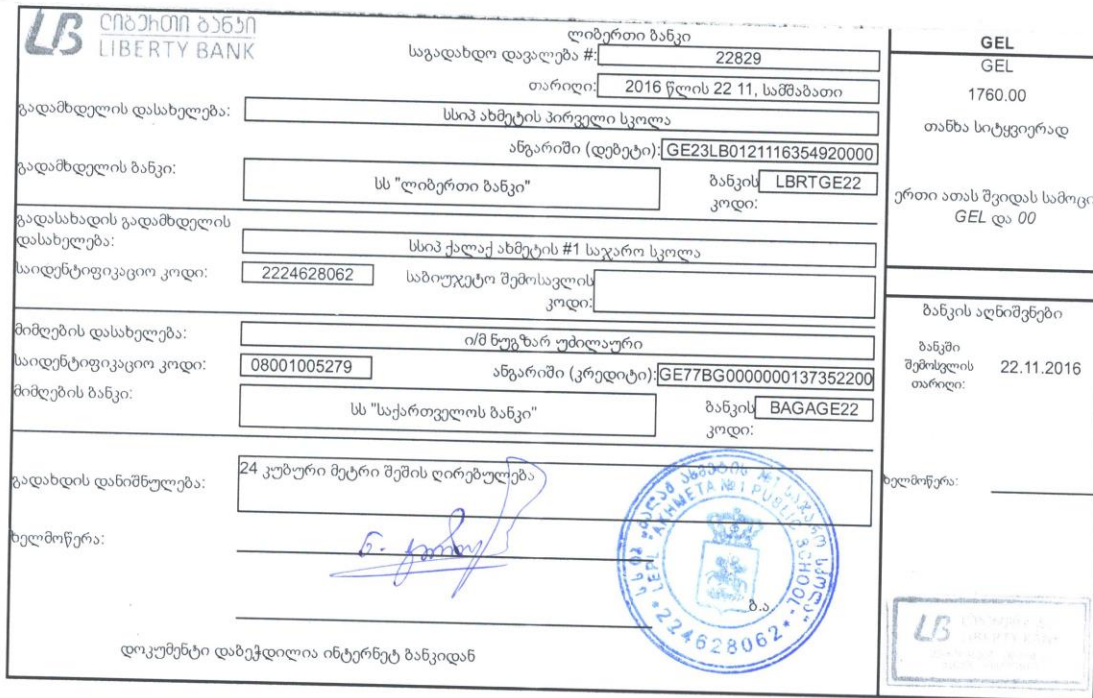 ᲚᲘᲑᲔᲠᲗᲘ ᲑᲐᲜᲙᲘ
LIBERTY BANK
ლიბერთი ბანკი
საგადახდო დავალება #: 22829
თარიღი: 2016 წლის 22 11, სამშაბათი
გადამხდელის დასახელება: სსიპ ახმეტის პირველი სკოლა
ანგარიში (დებეტი): GE23LB0121116354920000
გადამხდელის ბანკი: სს "ლიბერთი ბანკი" ბანკის კოდი: LBRTGE22
გადასახადის გადამხდელის დასახელება: სსიპ ქალაქ ახმეტის #1 საჯარო სკოლა
საიდენტიფიკაციო კოდი: 2224628062 საბიუჯეტო შემოსავლის კოდი:
მიმღების დასახელება: ი/მ ნუგზარ უძილაური
საიდენტიფიკაციო კოდი: 08001005279 ანგარიში (კრედიტი): GE77BG0000000137352200
მიმღების ბანკი: სს "საქართველოს ბანკი" ბანკის კოდი: BAGAGE22
გადახდის დანიშნულება: 24 კუბური მეტრი შეშის ღირებულება
ხელმოწერა:
ბ.ა.
დოკუმენტი დაბეჭდილია ინტერნეტ ბანკიდან
GEL
GEL
1760.00
თანხა სიტყვიერად
ერთი ათას შვიდას სამოცი
GEL და 00
ბანკის აღნიშვნები
ბანკში შემოსვლის თარიღი: 22.11.2016
ხელმოწერა:
სსიპ "ქალაქ ახმეტის №1 საჯარო სკოლა"
LEPL "AKHMETA №1 PUBLIC SCHOOL"
224628062
LIBERTY BANK